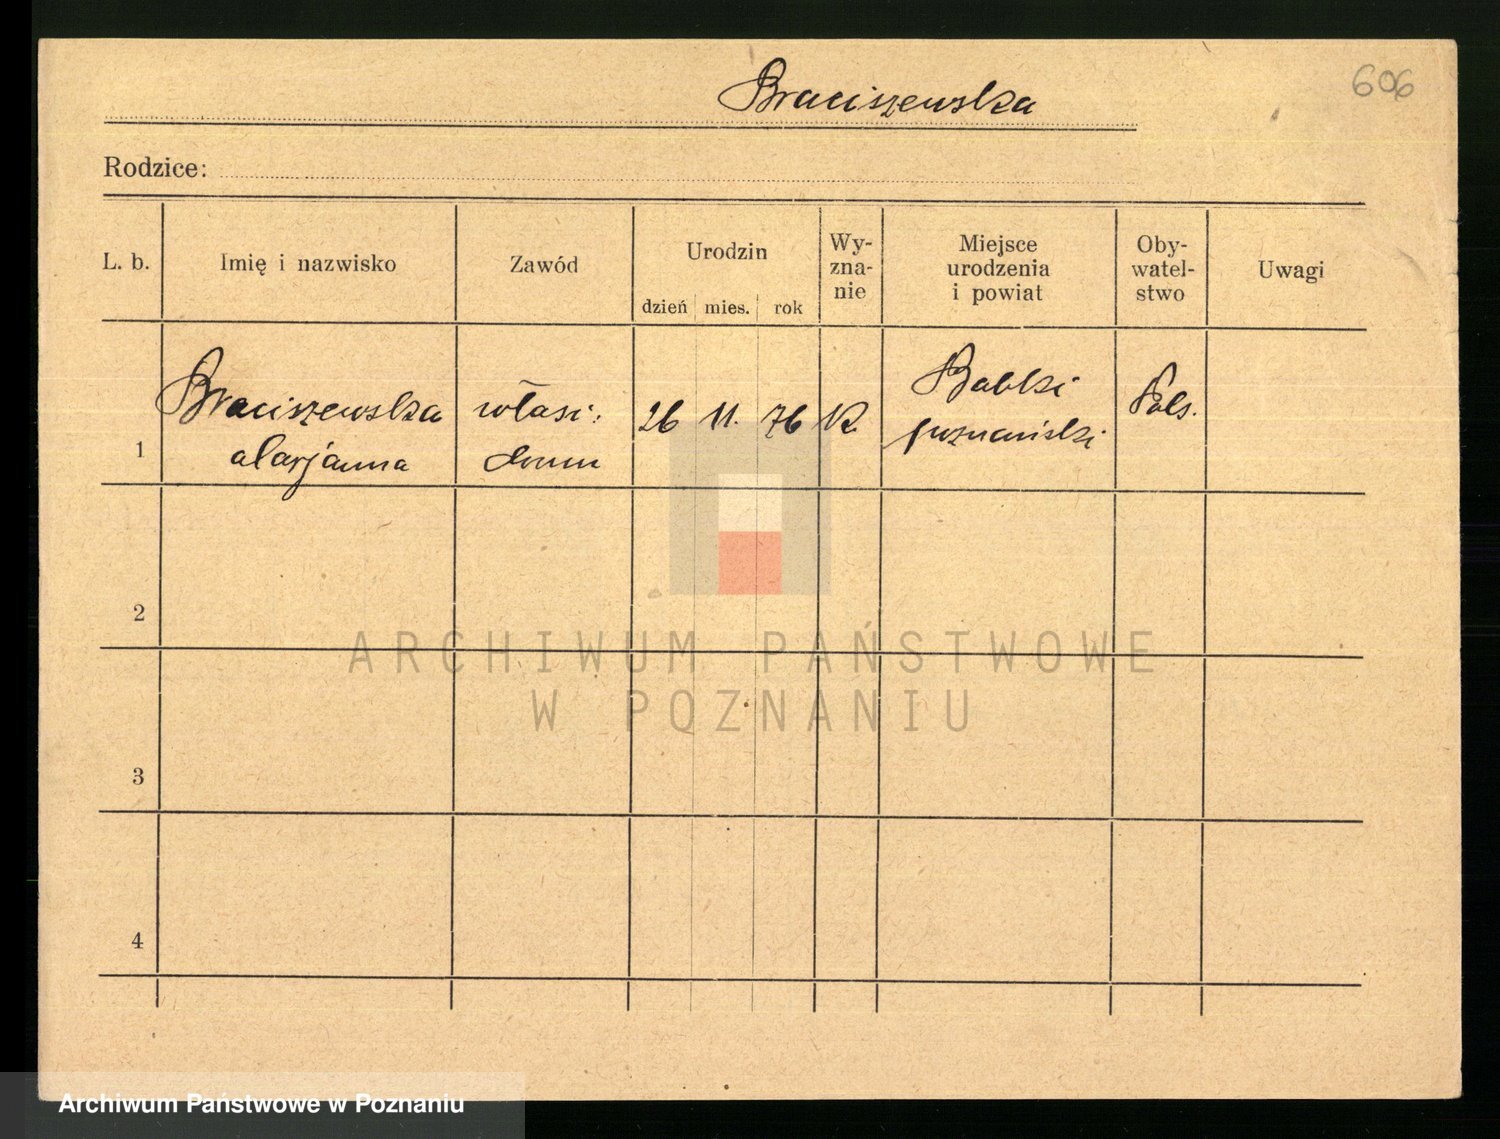 Braciszewska
606
Rodzice:
L. b.
Imię i nazwisko
Zawód
Urodzin
dzień mies. rok
Wy-
zna-
nie
Miejsce
urodzenia
i powiat
Oby-
watel-
stwo
Uwagi
1
Braciszewska
Marjanna
włası:
domu
26 11. 76
K
Babki
poznański
Pols.
2
3
4
ARCHIWUM PAŃSTWOWE
W POZNANIU
Archiwum Państwowe w Poznaniu